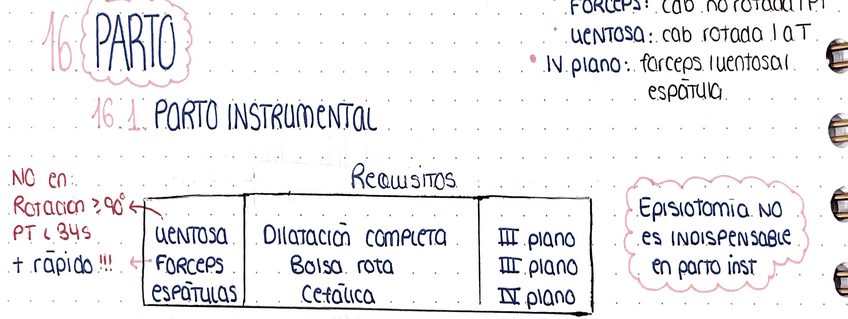 16. PARTO
FORCEPS: cab no rotada
VENTOSA: cab rotada
IV plano: forceps / ventosa /
espátula
16.1. PARTO INSTRUMENTAL
Requisitos
NO en:
Rotación ≥ 90°
PT < 34s
+ rápido !!!
VENTOSA Dilatación completa III plano
FORCEPS Bolsa rota III plano
ESPÁTULAS Cefálica IV plano
Episiotomia NO
es INDISPENSABLE
en parto inst